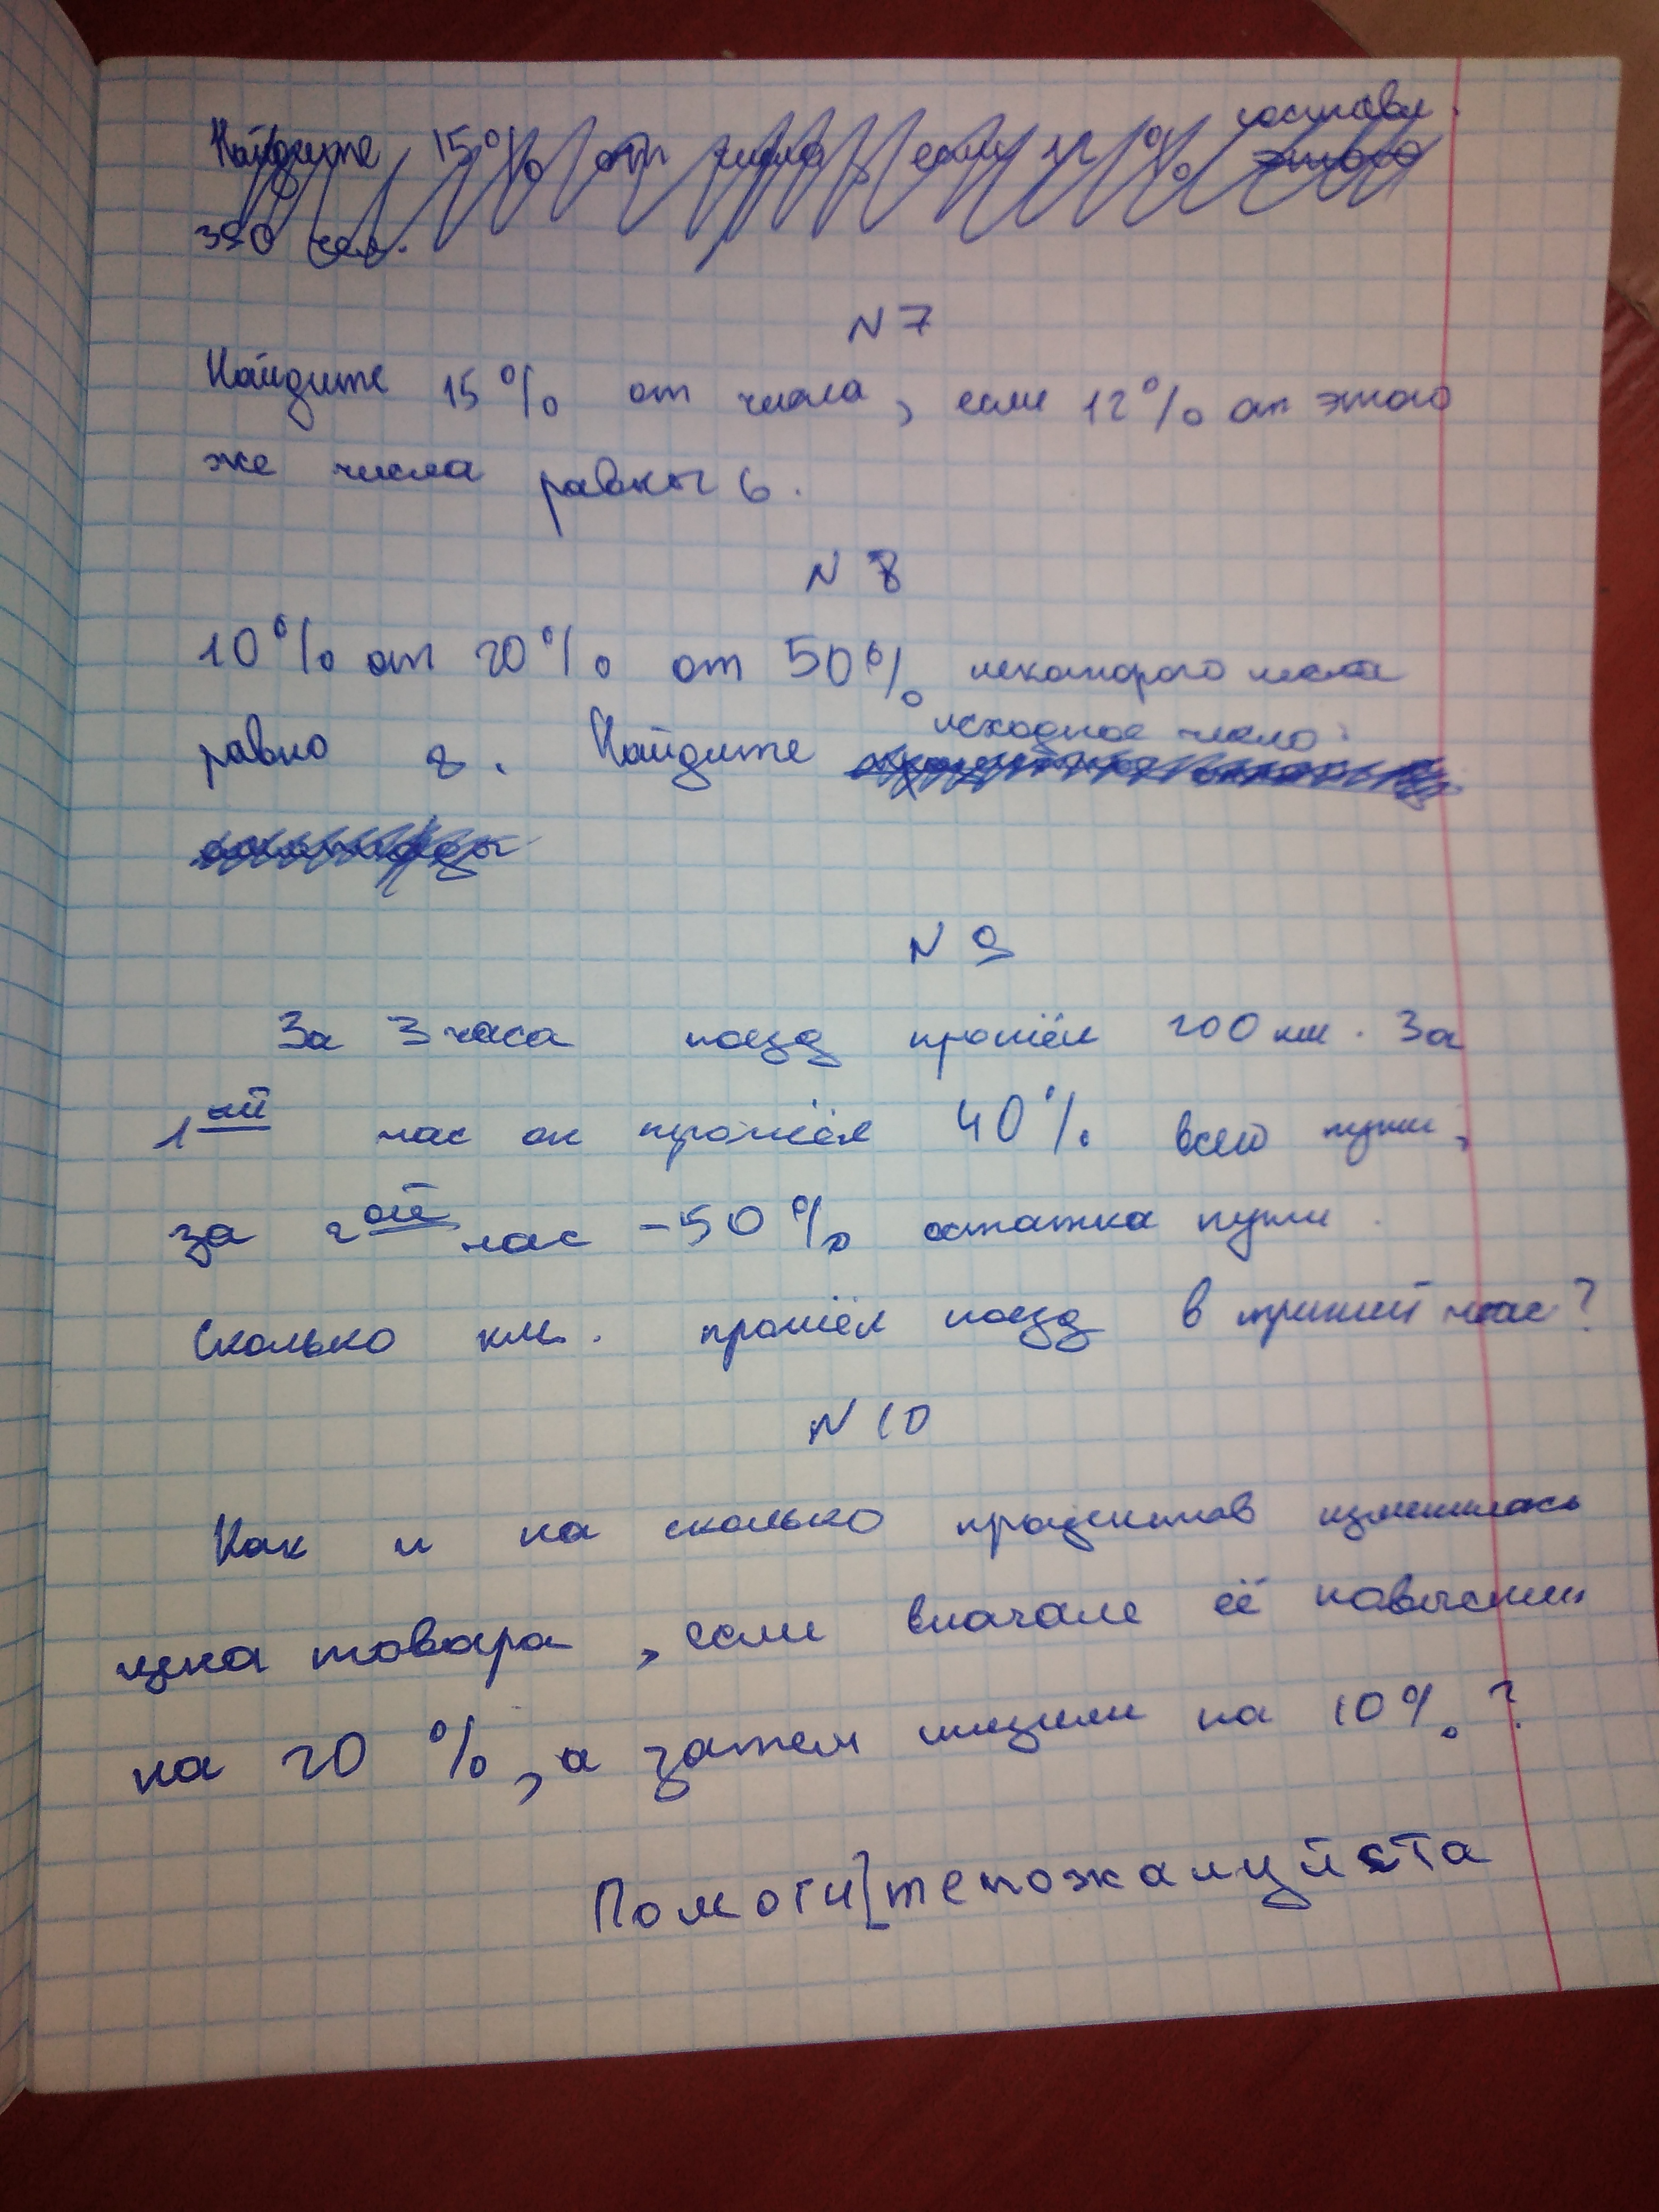 Найдите 15% от числа, если 12% составл.
350 чел.
N 7
Найдите 15% от числа, если 12% от этого
же числа равны 6.
N 8
10% от 20% от 50% некоторого числа
равно 8. Найдите исходное число.
N 9
За 3 часа поезд прошёл 200 км. За
1ый час он прошёл 40% всего пути,
за 2ой час - 50% остатка пути.
Сколько км. прошёл поезд в третий час?
N 10
Как и на сколько процентов изменилась
цена товара, если вначале её повысили
на 20 %, а затем снизили на 10%?
Помогите пожалуйста